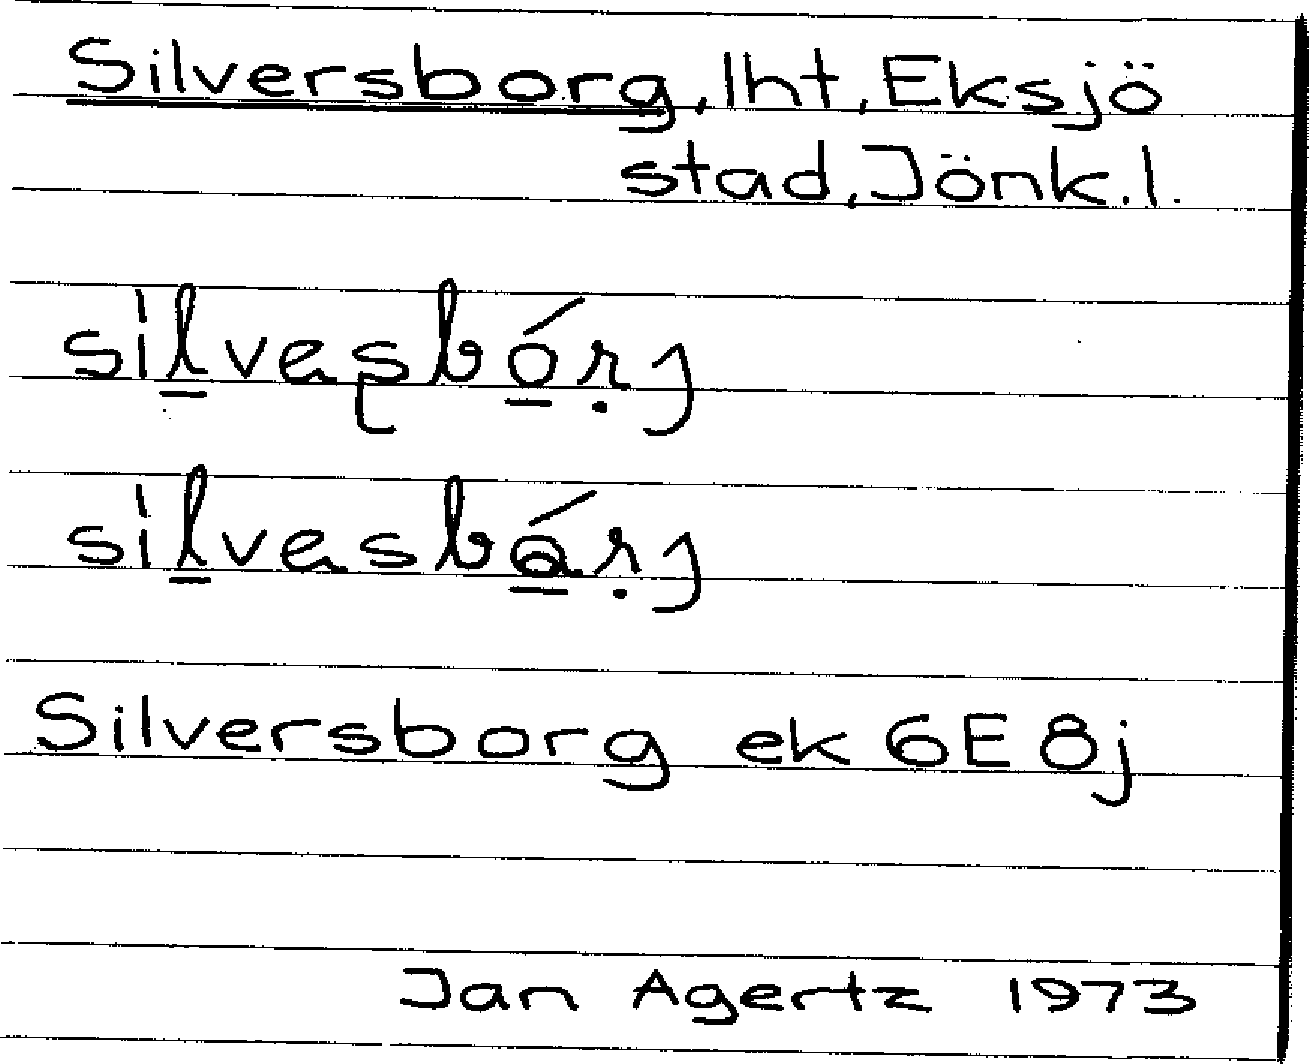 Silversborg, lht, Eksjö
stad, Jönk. l.
silvesbórj
silvesbárj
Silversborg ek 6E8j
Jan Agertz 1973